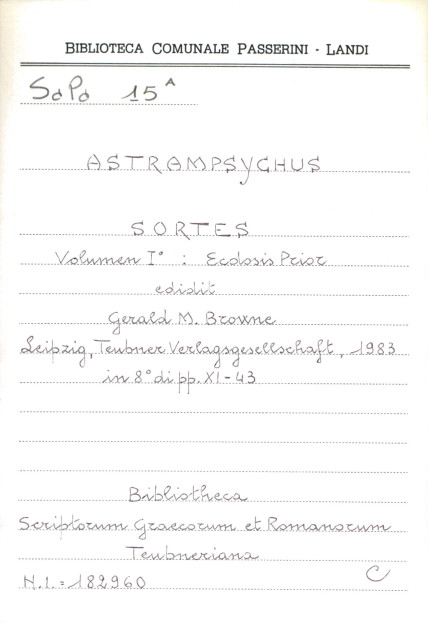 BIBLIOTECA COMUNALE PASSERINI - LANDI
SaPa 15^A
ASTRAMPSYCHUS
SORTES
Volumen I° : Ecdosis Prior
edidit
Gerald M. Browne
Leipzig, Teubner Verlagsgesellschaft, 1983
in 8° di pp. XI-43
Bibliotheca
Scriptorum Graecorum et Romanorum
Teubneriana
N.I. = 182960
C